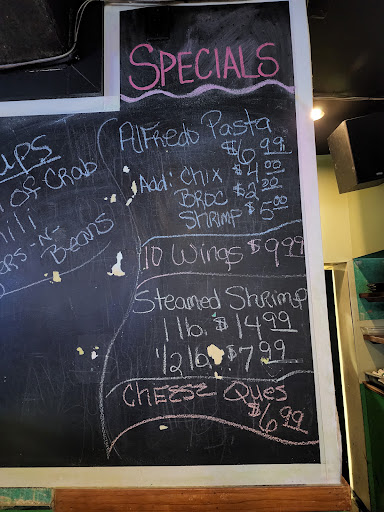 SPECIALS
Alfredo Pasta
$6.99
Add: Chix $4.00
BROC $2.00
SHRIMP $5.00
10 Wings $9.99
Steamed Shrimp
1 lb. $14.99
1/2 lb. $7.99
CHEESE Ques
$6.99
ups
of Crab
ili
ers-N-
Beans